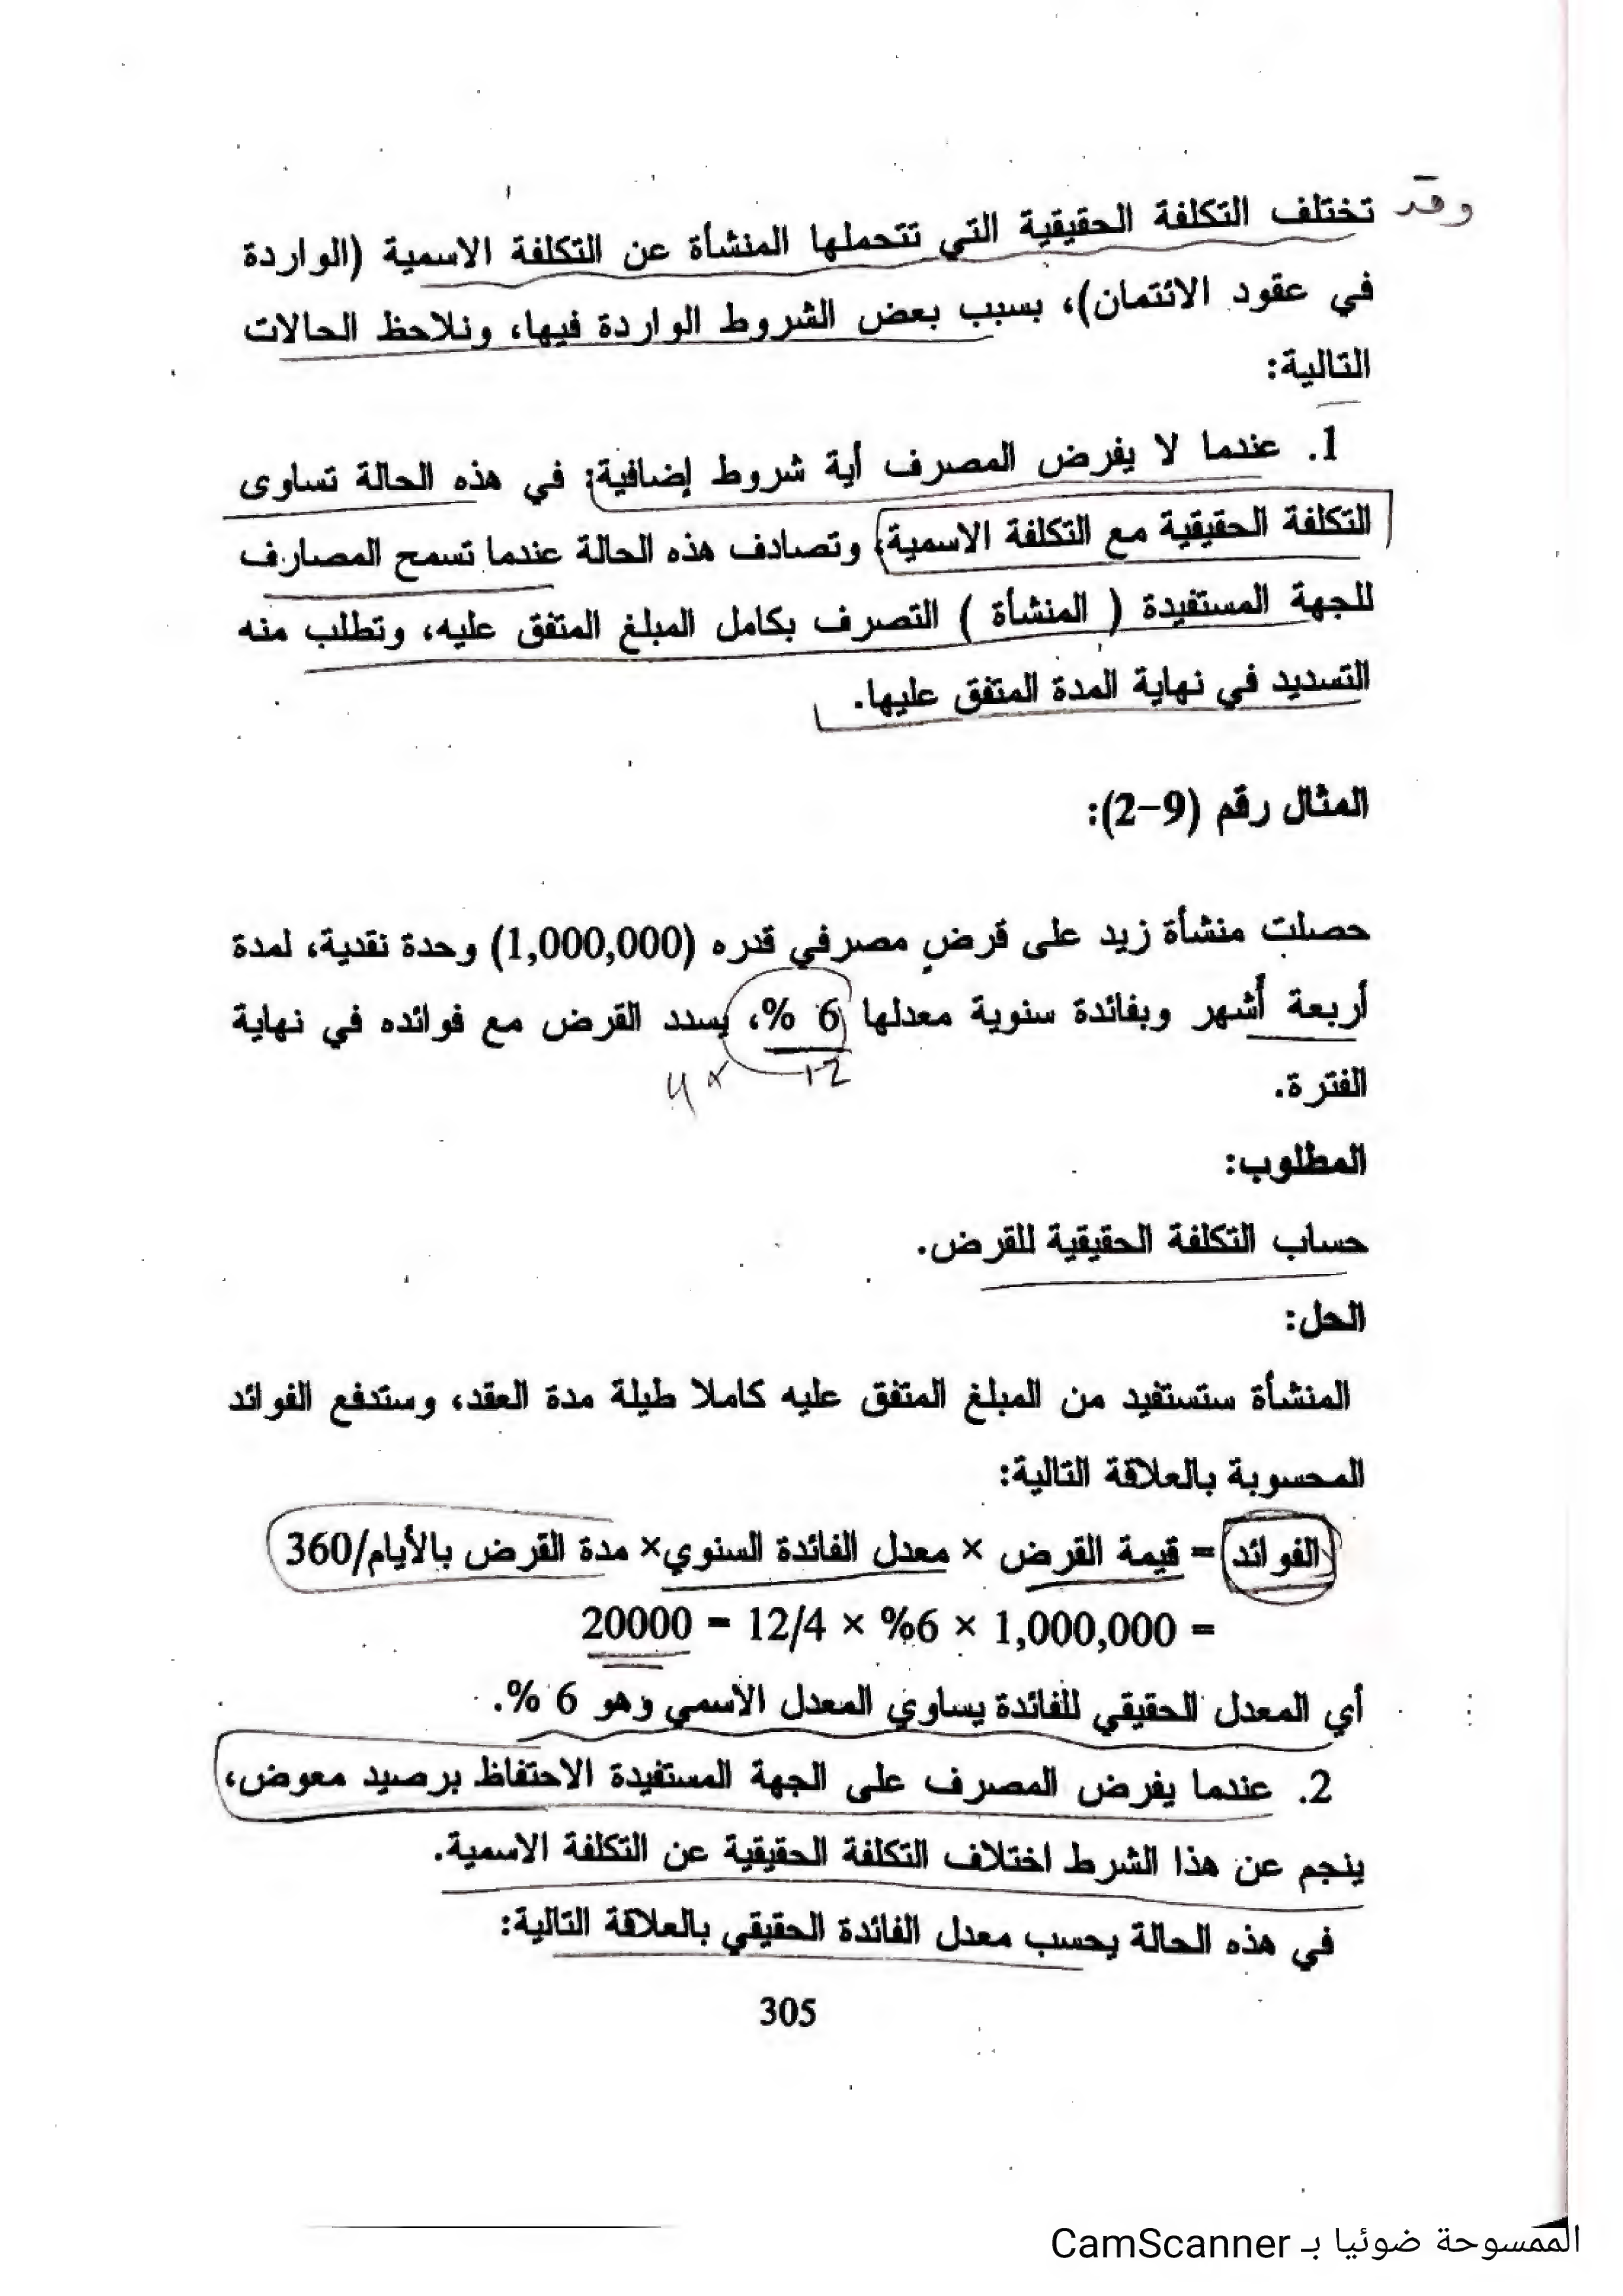 وقد تختلف التكلفة الحقيقية التي تتحملها المنشأة عن التكلفة الاسمية (الواردة
في عقود الائتمان)، بسبب بعض الشروط الواردة فيها، ونلاحظ الحالات
التالية:
1. عندما لا يفرض المصرف أية شروط إضافية: في هذه الحالة تساوى
التكلفة الحقيقية مع التكلفة الاسمية، وتصادف هذه الحالة عندما تسمح المصارف
للجهة المستفيدة ( المنشأة ) التصرف بكامل المبلغ المتفق عليه، وتطلب منه
التسديد في نهاية المدة المتفق عليها.
المثال رقم (9-2):
حصلت منشأة زيد على قرضٍ مصرفي قدره (1,000,000) وحدة نقدية، لمدة
أربعة أشهر وبفائدة سنوية معدلها 6 %، يسدد القرض مع فوائده في نهاية
4 × 12
الفترة.
المطلوب:
حساب التكلفة الحقيقية للقرض.
الحل:
المنشأة ستستفيد من المبلغ المتفق عليه كاملا طيلة مدة العقد، وستدفع الفوائد
المحسوبة بالعلاقة التالية:
الفوائد = قيمة القرض × معدل الفائدة السنوي× مدة القرض بالأيام/360
= 1,000,000 × 6% × 12/4 = 20000
أي المعدل الحقيقي للفائدة يساوي المعدل الأسمي وهو 6 %.
2. عندما يفرض المصرف على الجهة المستفيدة الاحتفاظ برصيد معوض،
ينجم عن هذا الشرط اختلاف التكلفة الحقيقية عن التكلفة الاسمية.
في هذه الحالة يحسب معدل الفائدة الحقيقي بالعلاقة التالية:
305
الممسوحة ضوئيا بـ CamScanner